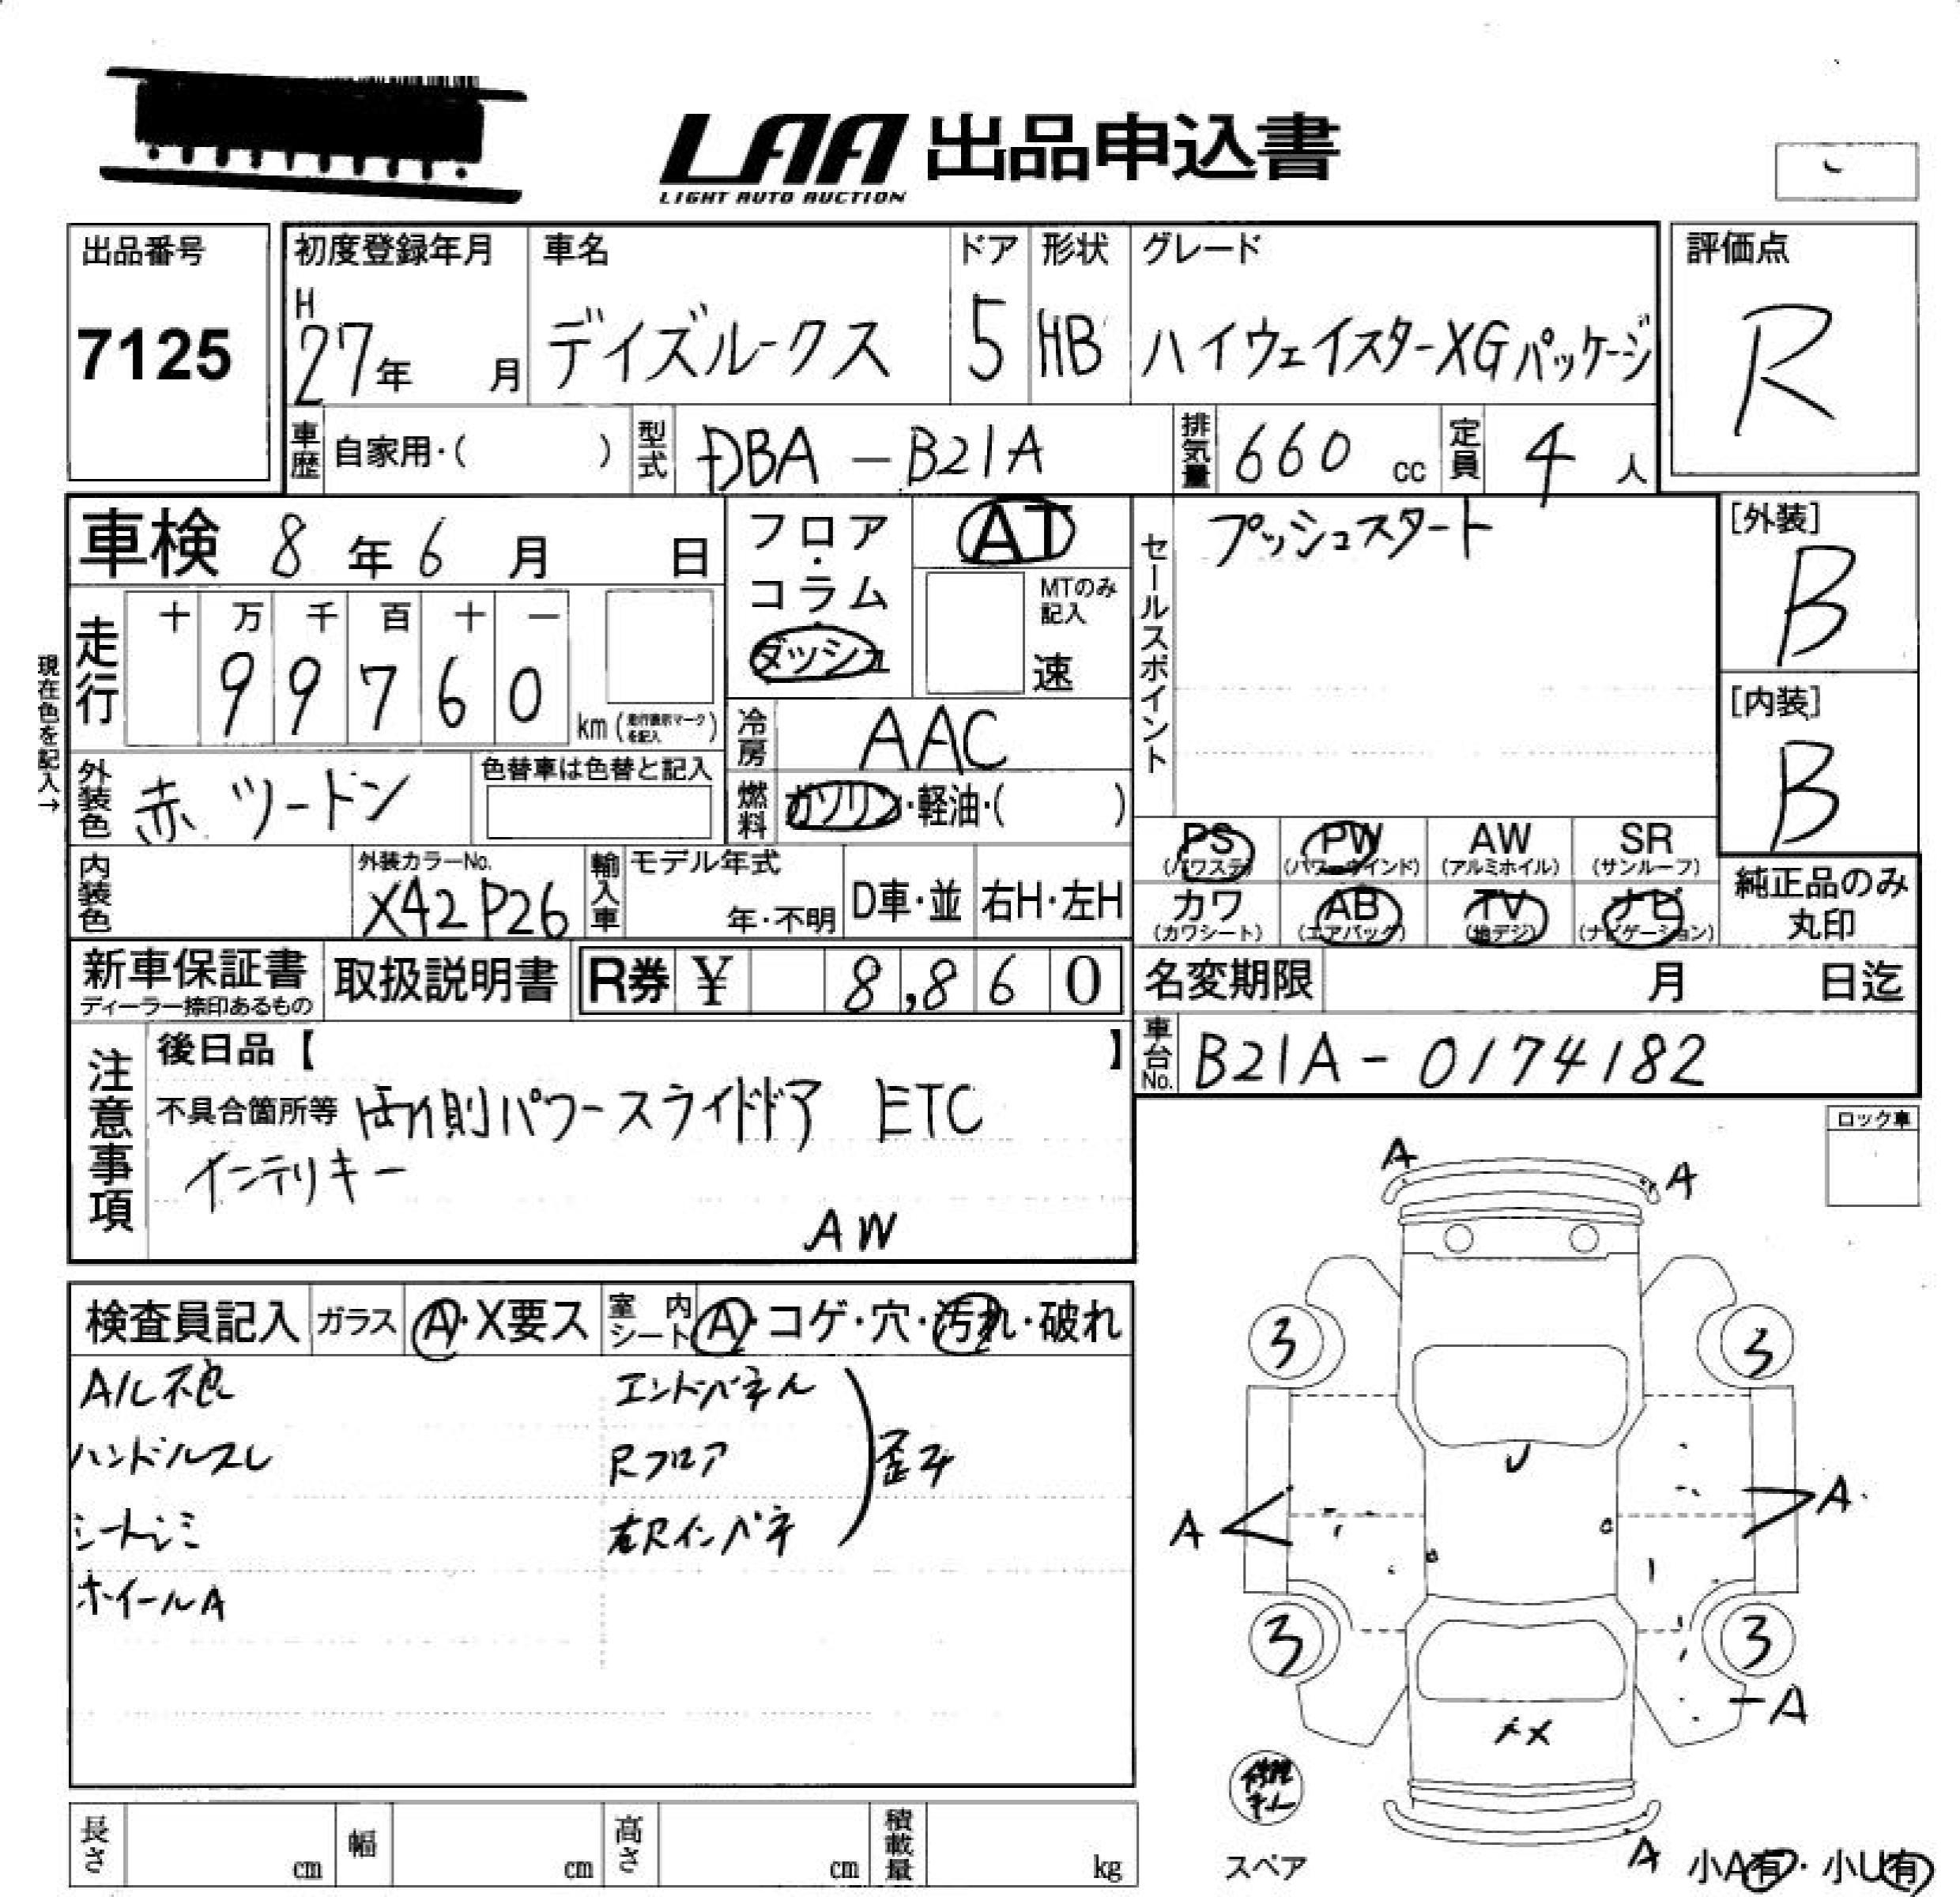 LAA 出品申込書
LIGHT AUTO AUCTION
出品番号
7125
初度登録年月
H
27年 月
車名
デイズルークス
ドア
5
形状
HB
グレード
ハイウェイスターXGパッケージ
評価点
R
車歴 自家用・( )
型式 DBA-B21A
排気量 660 cc
定員 4 人
車検 8年6月 日
フロア・コラム・ダッシュ
AT
MTのみ記入
速
セールスポイント
プッシュスタート
[外装]
B
[内装]
B
現在色を記入→
走行
十 万 千 百 十 一
9 9 7 6 0
km(走行表示マークを記入)
冷房 AAC
外装色 赤 ツートン
色替車は色替と記入
燃料 ガソリン・軽油・( )
PS (パワステ)
PW (パワーウインド)
AW (アルミホイル)
SR (サンルーフ)
カワ (カワシート)
AB (エアバック)
TV (地デジ)
ナビ (ナビゲーション)
純正品のみ
丸印
内装色
外装カラーNo.
X42 P26
輸入車
モデル年式
年・不明
D車・並
右H・左H
新車保証書
ディーラー捺印あるもの
取扱説明書
R券 ¥ 8,860
名変期限 月 日迄
車台No. B21A-0174182
注意事項
後日品【 】
不具合箇所等 両側パワースライドドア ETC
インテリキー
AW
ロック車
検査員記入 ガラス A・X要ス 室内シート A・コゲ・穴・汚れ・破れ
A/L不良
ハンドルスレ
シートシミ
ホイールA
エンドパネル
Rフロア
右Rインパネ
歪み
A
A
3
3
U
A
A
3
3
A
XX
修理キット
スペア
A
小A有・小U有
長さ cm
幅 cm
高さ cm
積載量 kg